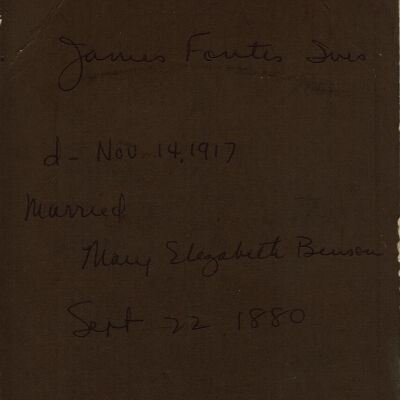 James Fontes Ives
d- Nov. 14, 1917
Married
Mary Elezabeth Benson
Sept 22 1880